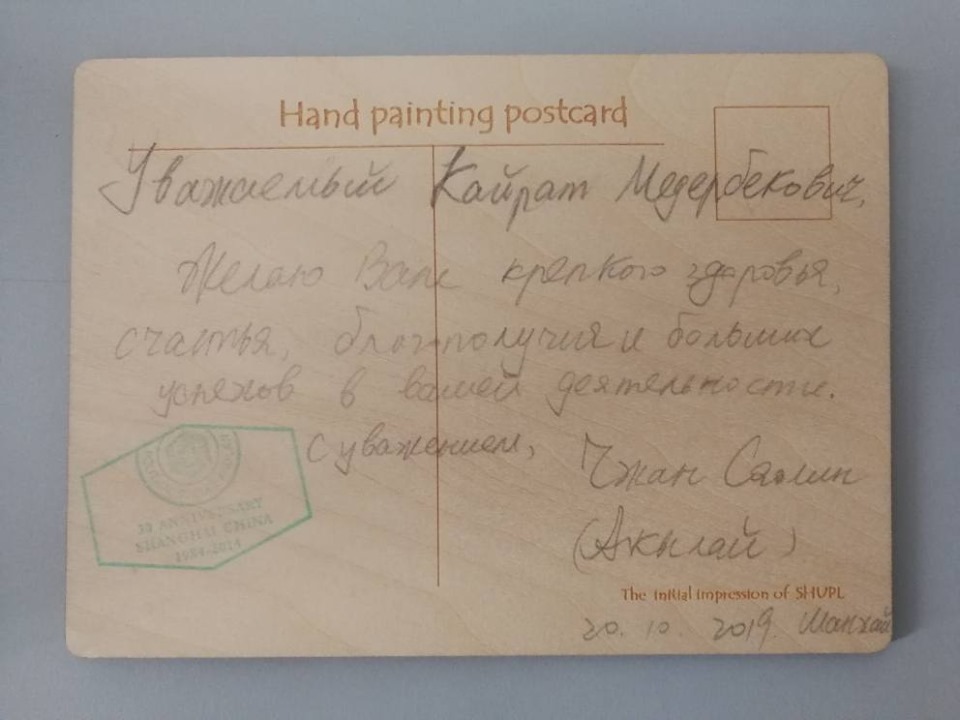 Hand painting postcard
Уважаемый Кайрат Медербекович,
Желаю Вам крепкого здоровья,
счастья, благополучия и больших
успехов в вашей деятельности.
С уважением,
Чжан Сяолин
(Акылай)
30 ANNIVERSARY
SHANGHAI CHINA
1984-2014
The initial impression of SHUPL
20. 10. 2019 Шанхай